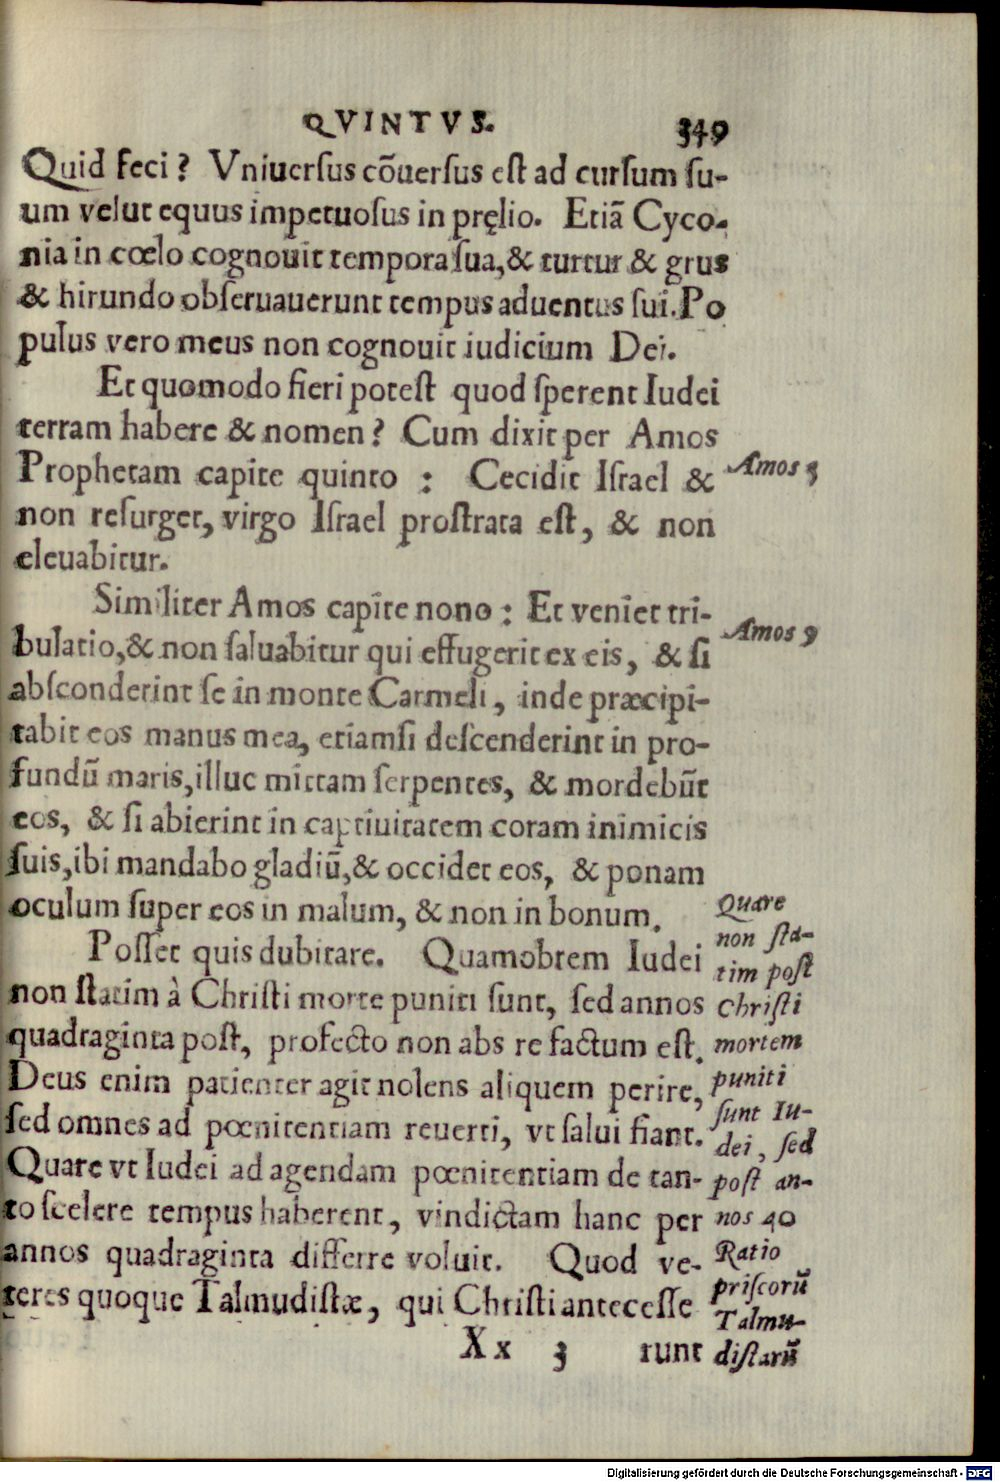 QVINTVS. 349
Quid feci? Vniuerſus cõuerſus eſt ad curſum ſu-
um velut equus impetuoſus in pręlio. Etiã Cyco-
nia in cœlo cognouit tempora ſua, & turtur & grus
& hirundo obſeruauerunt tempus aduentus ſui. Po
pulus vero meus non cognouit iudicium Dei.
Et quomodo fieri poteſt quod ſperent Iudei
terram habere & nomen? Cum dixit per Amos
Prophetam capite quinto : Cecidit Iſrael &
non reſurget, virgo Iſrael proſtrata eſt, & non
eleuabitur.
Similiter Amos capite nono : Et veniet tri-
bulatio, & non ſaluabitur qui effugerit ex eis, & ſi
abſconderint ſe in monte Carmeli, inde præcipi-
tabit eos manus mea, etiamſi deſcenderint in pro-
fundũ maris, illuc mittam ſerpentes, & mordebũt
eos, & ſi abierint in captiuitatem coram inimicis
ſuis, ibi mandabo gladiũ, & occidet eos, & ponam
oculum ſuper eos in malum, & non in bonum.
Poſſet quis dubitare. Quamobrem Iudei
non ſtatim à Chriſti morte puniti ſunt, ſed annos
quadraginta poſt, profecto non abs re factum eſt.
Deus enim patienter agit nolens aliquem perire,
ſed omnes ad pœnitentiam reuerti, vt ſalui fiant.
Quare vt Iudei ad agendam pœnitentiam de tan-
to ſcelere tempus haberent, vindictam hanc per
annos quadraginta differre voluit. Quod ve-
teres quoque Talmudiſtæ, qui Chriſti anteceſſe
Xx 3 runt
Amos 5
Amos 9
Quare
non ſta-
tim poſt
Chriſti
mortem
puniti
ſunt Iu-
dei, ſed
poſt an-
nos 40
Ratio
priſcorũ
Talmu-
diſtarũ
Digitalisierung gefördert durch die Deutsche Forschungsgemeinschaft - DFG